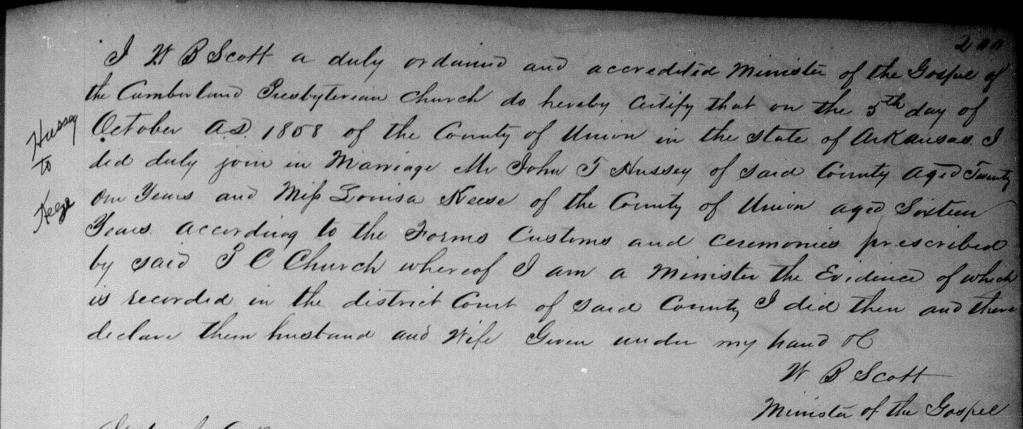 200
I W B Scott a duly ordained and accredited Minister of the Gospel of
the Cumberland Presbyterian Church do hereby Certify that on the 5th day of
October A.D. 1858 of the County of Union in the State of Arkansas I
did duly join in Marriage Mr John T Hussey of said County aged Twenty
one Years and Miss Louisa Keese of the County of Union aged Sixteen
Years according to the Forms Customs and Ceremonies prescribed
by said P C Church whereof I am a Minister the Evidence of which
is recorded in the district Court of said County I did then and there
declare them husband and Wife Given under my hand &C
W B Scott
Minister of the Gospel
Hussey
to
Keeze